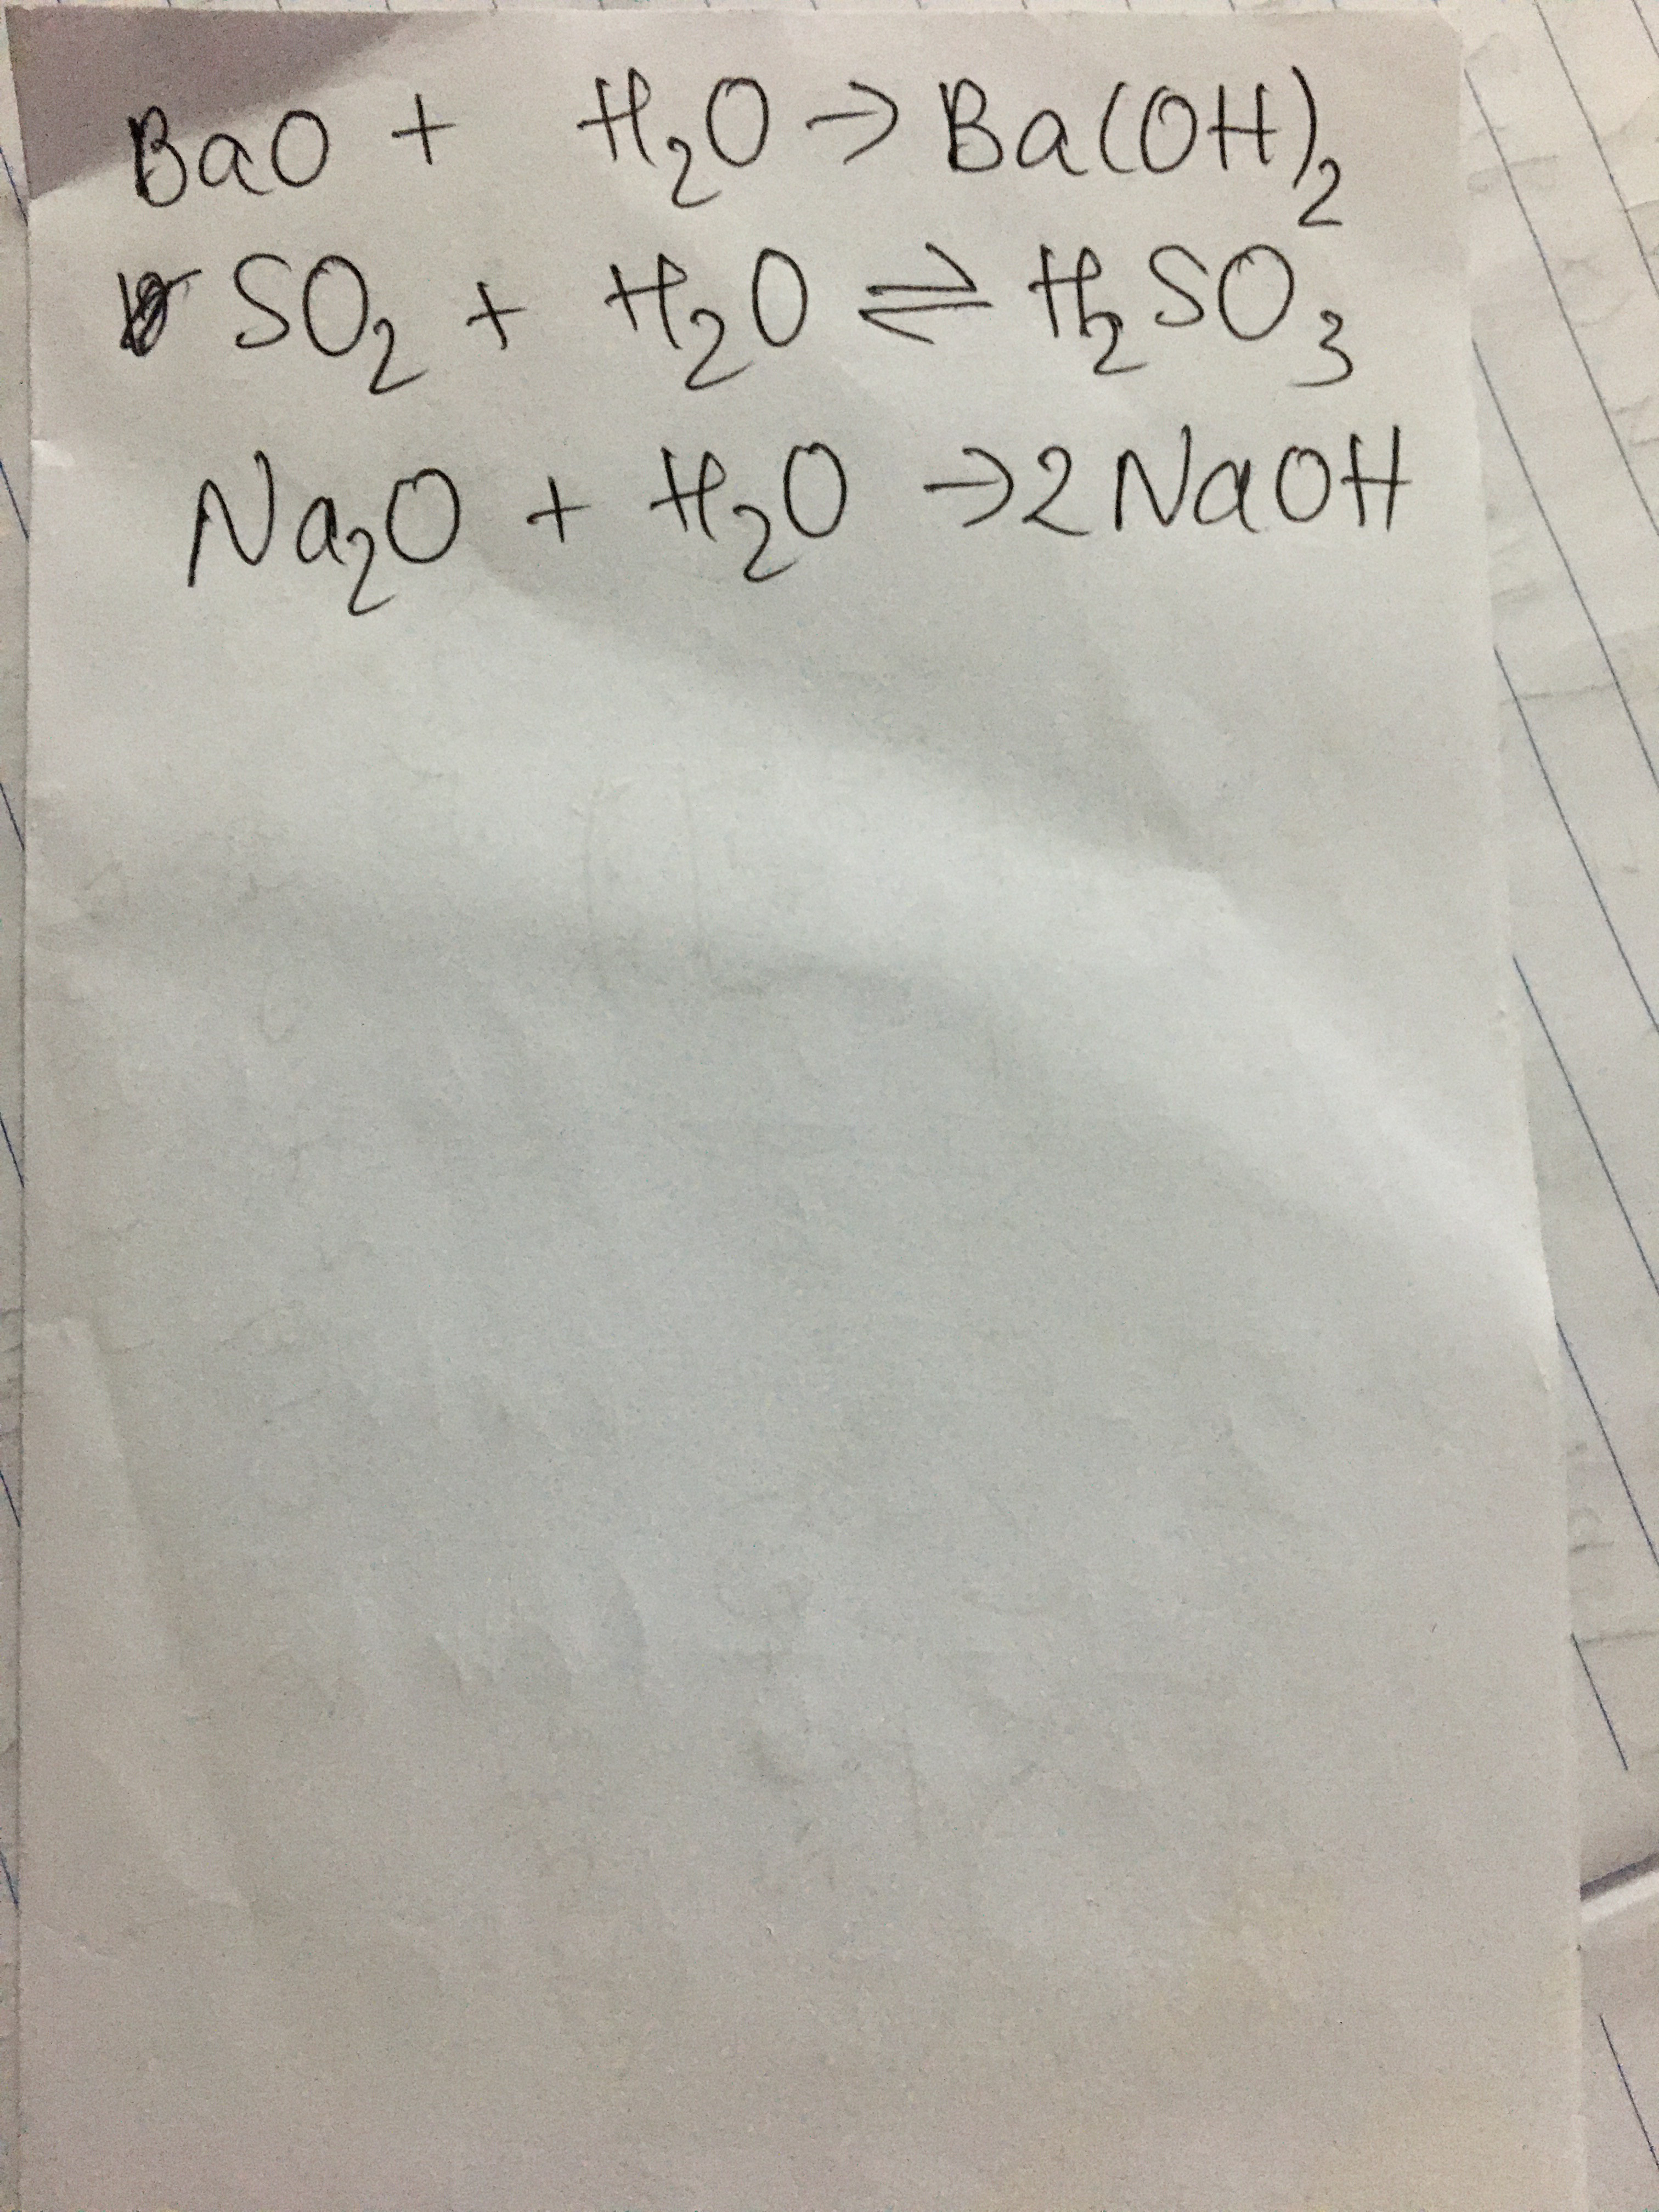 BaO + H₂O → Ba(OH)₂
SO₂ + H₂O ⇌ H₂SO₃
Na₂O + H₂O → 2NaOH